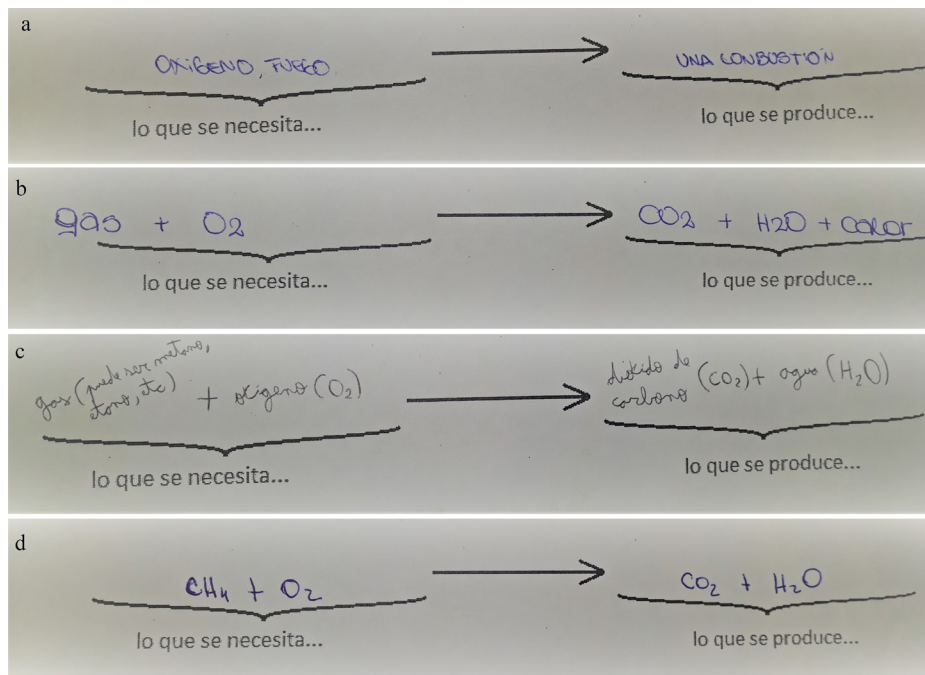 a
OXÍGENO, FUEGO.
UNA CONBUSTIÓN
lo que se necesita...
lo que se produce...
b
gas + O2
CO2 + H2O + calor
lo que se necesita...
lo que se produce...
c
gas (puede ser metano,
etano, etc) + oxígeno (O2)
dióxido de
carbono (CO2) + agua (H2O)
lo que se necesita...
lo que se produce...
d
CH4 + O2
CO2 + H2O
lo que se necesita...
lo que se produce...